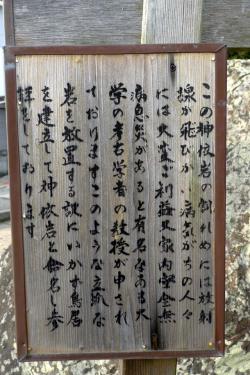 この神依岩の割れめには放射
線が飛びかい病気がちの人々
には大変ご利益又家内安全無
病息災があると有名なある大
学の考古学者の教授が申され
ておりますこのような立派な
岩を放置する訳にいかず鳥居
を建立して神依岩と命名し参
拝しております